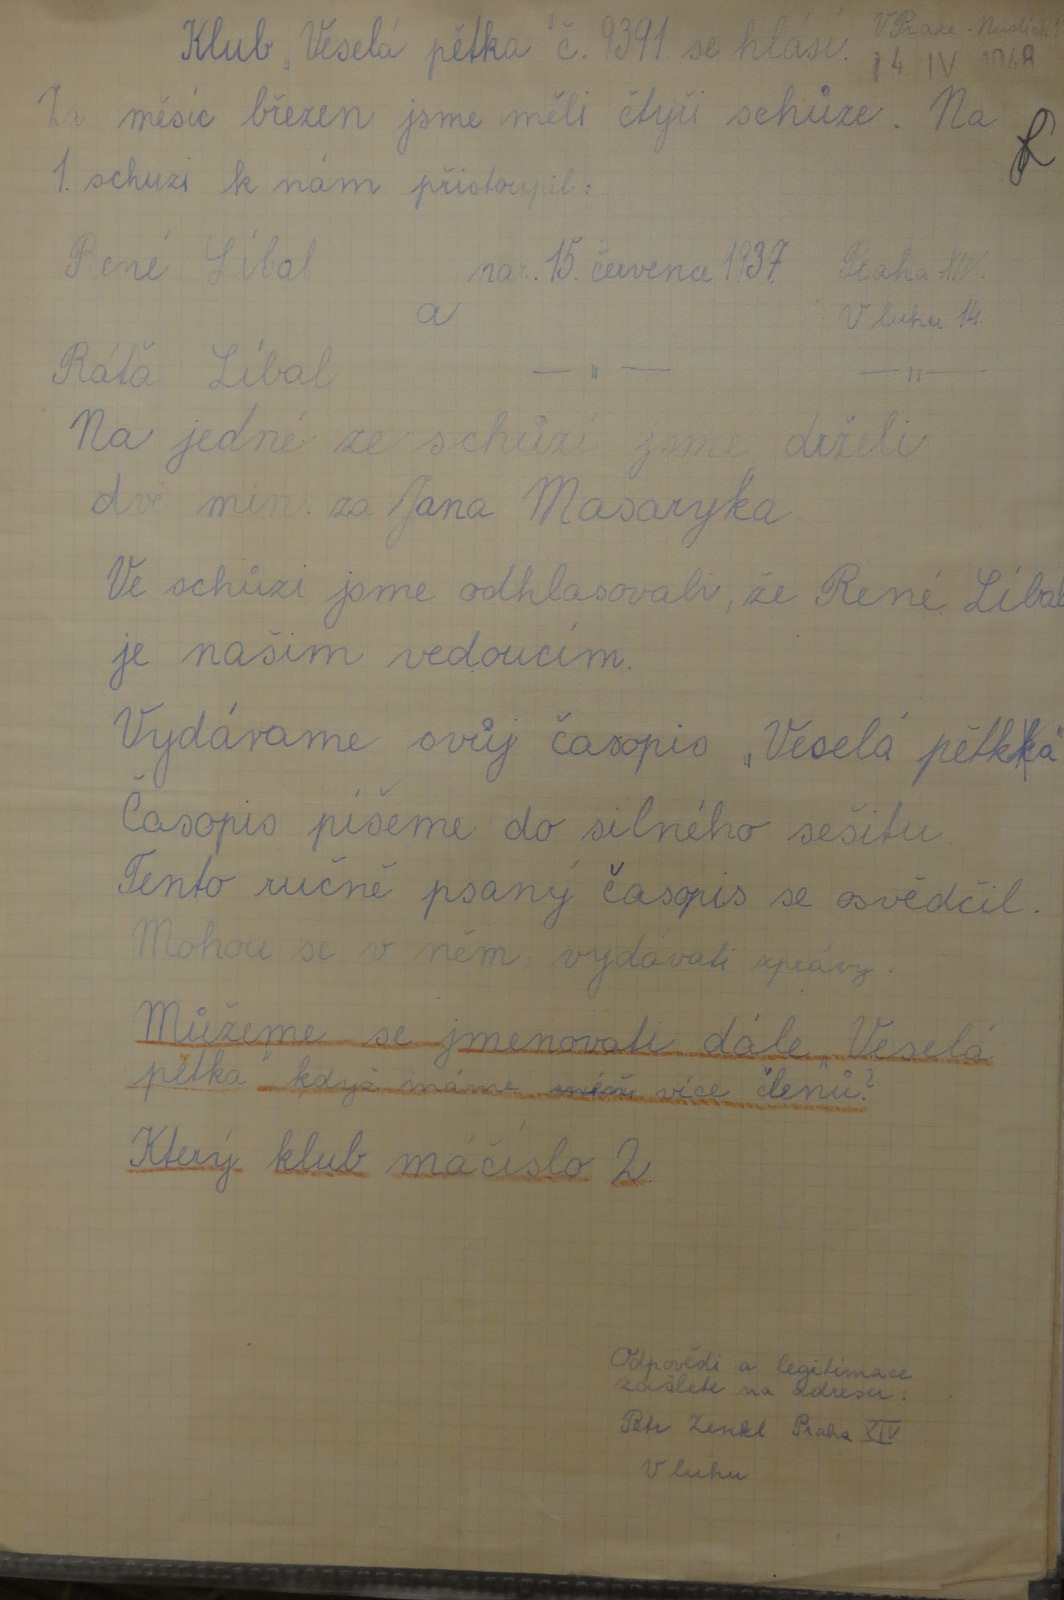 V Praze - Nuslích
14 IV 1948
Klub „Veselá pětka" č. 9391 se hlásí.
Za měsíc březen jsme měli čtyři schůze. Na
1. schuzi k nám přistoupil:
René Líbal nar. 15. července 1937 Praha XIV.
a V luhu 14.
Rátă Líbal — " — — " —
Na jedné ze schůzí jsme drželi
dvě min. za Jana Masaryka
Ve schůzi jsme odhlasovali, že René Líbal
je našim vedoucím.
Vydávame svůj časopis „Veselá pětka"
Časopis píšeme do silného sešitu.
Tento ručně psaný časopis se osvědčil.
Mohou se v něm vydávati zprávy.
Můžeme se jmenovati dále „Veselá
pětka" když máme více členů?
Který klub má číslo 2.
Odpovědi a legitimace
zašlete na adresu:
Petr Zenkl Praha XIV
V luhu